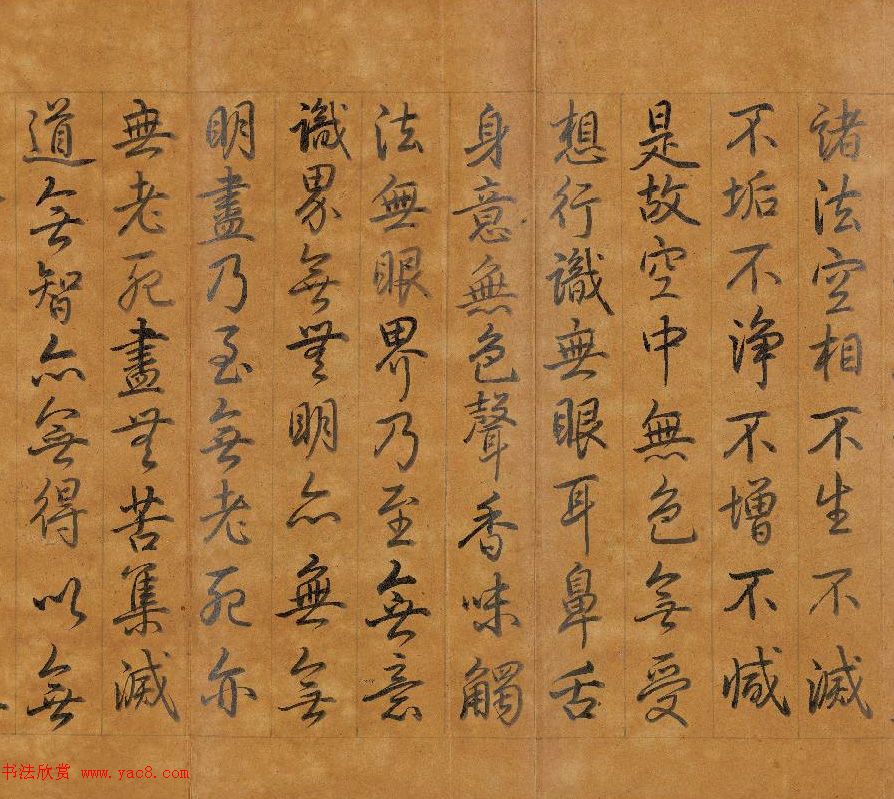 諸法空相不生不滅
不垢不淨不增不減
是故空中無色無受
想行識無眼耳鼻舌
身意無色聲香味觸
法無眼界乃至無意
識界無無明亦無無
明盡乃至無老死亦
無老死盡無苦集滅
道無智亦無得以無
书法欣赏 www.yac8.com